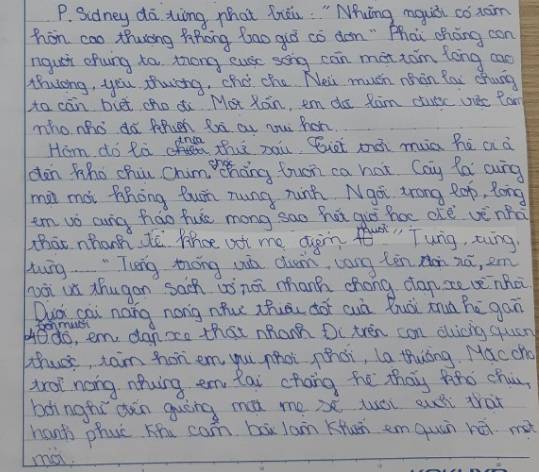 P. Sidney đã từng phát biểu: "Những người có tâm
hồn cao thượng không bao giờ cô đơn" Phải chăng con
người chúng ta trong cuộc sống cần một tấm lòng cao
thượng, yêu thương, chở che Nếu muốn nhận lại chúng
ta cần biết cho đi Một lần, em đã làm được việc làm
nho nhỏ đã khiến bà cụ vui hơn.
Hôm đó là trưa thứ sáu. Tiết trời mùa hè oi ả
đến khó chịu Chim chóc chẳng buồn ca hát Cây lá cũng
mệt mỏi không buồn rung rinh Ngồi trong lớp, lòng
em vô cùng háo hức mong sao hết giờ học để về nhà
thật nhanh để khoe với mẹ điểm 10 "Tùng, tùng,
tùng ..." Tiếng trống vừa điểm, vang lên rã, em
vội vã thu gọn sách vở rồi nhanh chóng đạp xe về nhà
Dưới cái nắng nóng như thiêu đốt của buổi trưa hè gần
bốn mươi độ, em đạp xe thật nhanh Đi trên con đường quen
thuộc, tâm hồn em vui phơi phới, lạ thường Mặc cho
trời nóng nhưng em lại chẳng hề thấy khó chịu,
bởi nghĩ đến gương mặt mẹ sẽ tươi cười thật
hạnh phúc khi cầm bài làm khiến em quên hết mệt
mỏi.